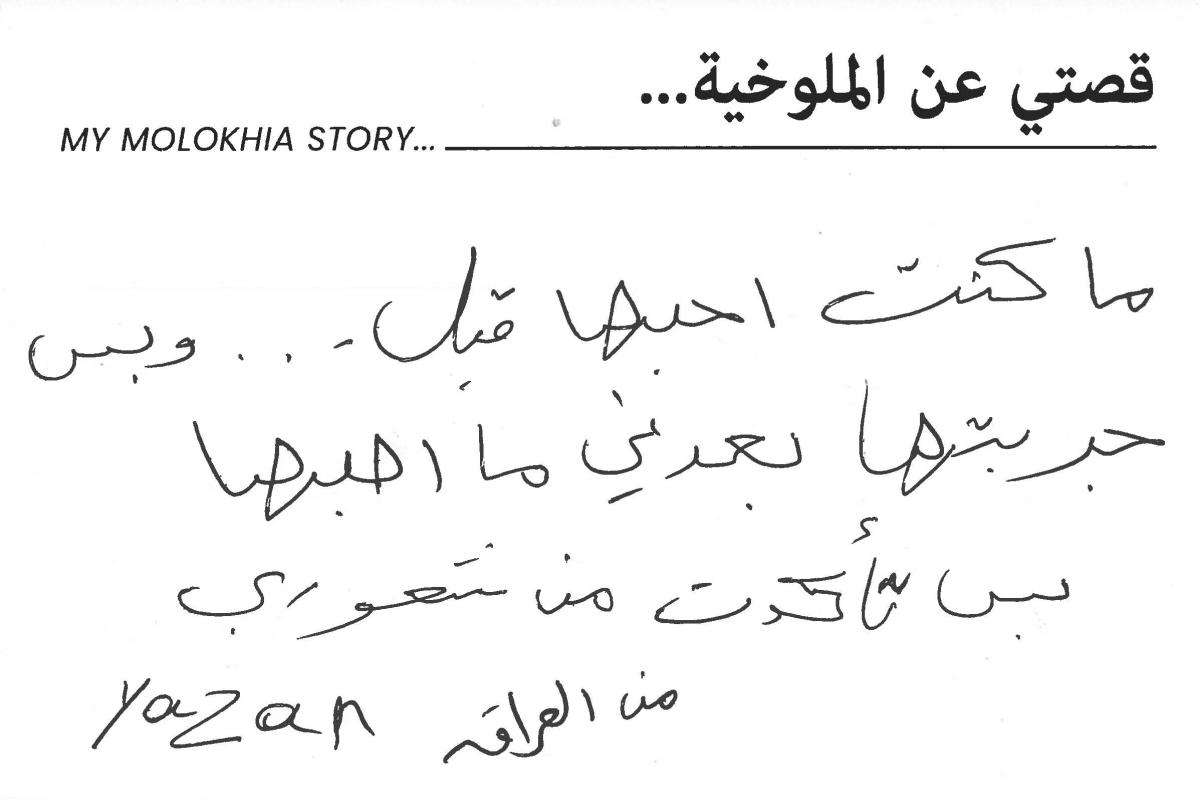 قصتي عن الملوخية...
MY MOLOKHIA STORY...
ما كنت احبها قبل - . . . وبس
جربتها بعدني ما احبها
بس تأكدت من شعوري
من العراق Yazan